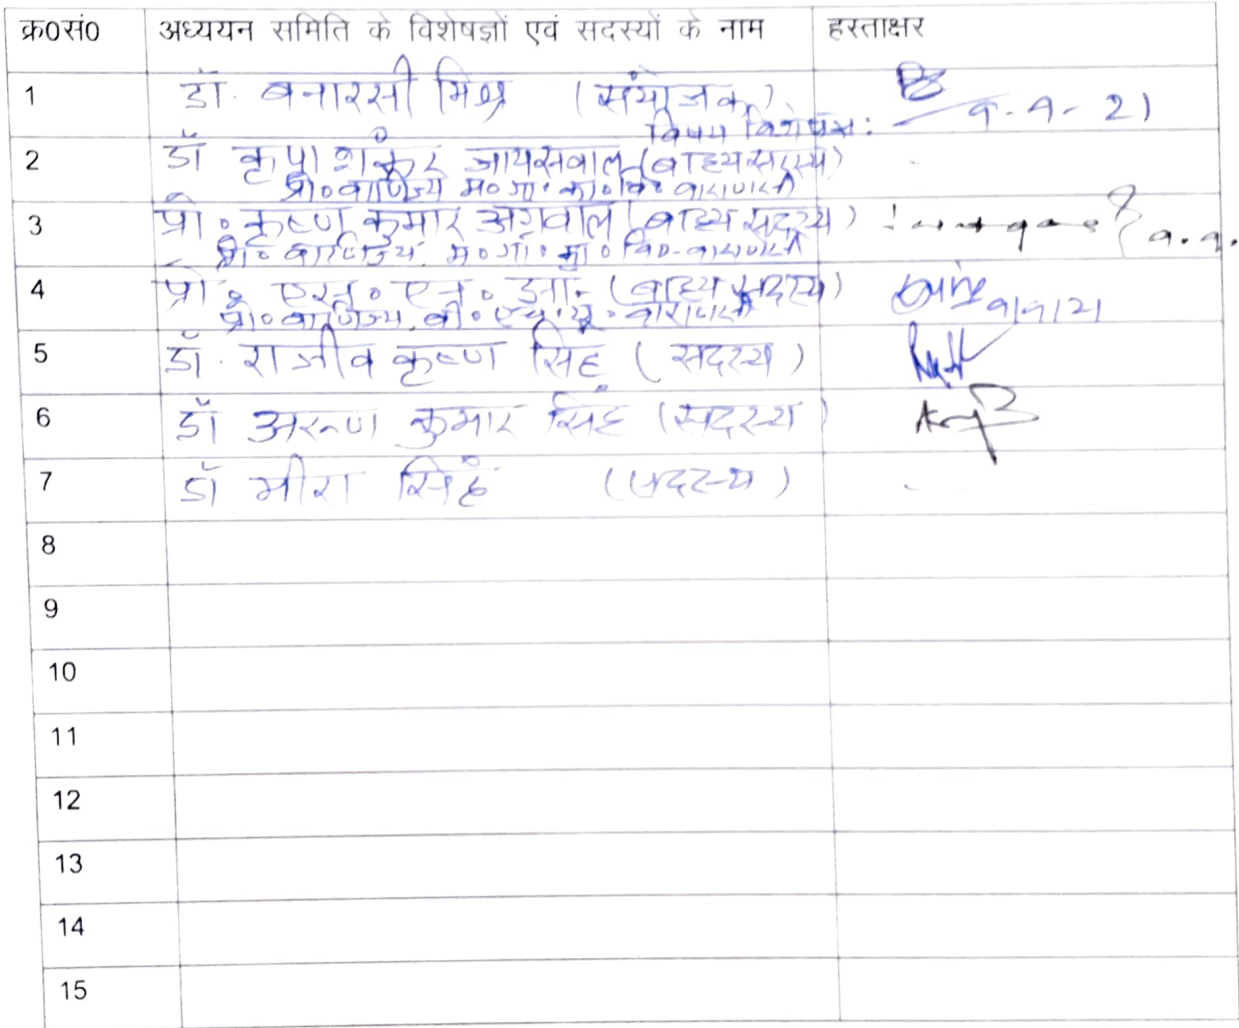 क्र०सं० अध्ययन समिति के विशेषज्ञों एवं सदस्यों के नाम हस्ताक्षर
1 डॉ. बनारसी मिश्र (संयोजक) 9-9-21
विषय विशेषज्ञ:
2 डॉ कृपा शंकर जायसवाल (बाह्य सदस्य)
प्रो० वाणिज्य म० गा० का० वि० वाराणसी
3 प्रो० कृष्ण कुमार अग्रवाल (बाह्य सदस्य) 9.9.
प्रो० वाणिज्य म० गा० का० वि० वाराणसी
4 प्रो० एस० एन० (बाह्य सदस्य) 9/9/21
प्रो० वाणिज्य बी० एच० यू० वाराणसी
5 डॉ. राजीव कृष्ण सिंह (सदस्य)
6 डॉ अरूण कुमार सिंह (सदस्य)
7 डॉ मीरा सिंह (सदस्य)
8
9
10
11
12
13
14
15